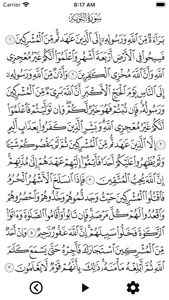 Carrier 8:17 AM
سُورَةُ التَّوْبَةِ
بَرَاءَةٌ مِّنَ اللَّهِ وَرَسُولِهِ إِلَى الَّذِينَ عَاهَدتُّم مِّنَ الْمُشْرِكِينَ ١
فَسِيحُوا فِي الْأَرْضِ أَرْبَعَةَ أَشْهُرٍ وَاعْلَمُوا أَنَّكُمْ غَيْرُ مُعْجِزِي
اللَّهِ وَأَنَّ اللَّهَ مُخْزِي الْكَافِرِينَ ٢ وَأَذَانٌ مِّنَ اللَّهِ وَرَسُولِهِ إِلَى
النَّاسِ يَوْمَ الْحَجِّ الْأَكْبَرِ أَنَّ اللَّهَ بَرِيءٌ مِّنَ الْمُشْرِكِينَ
وَرَسُولُهُ فَإِن تُبْتُمْ فَهُوَ خَيْرٌ لَّكُمْ وَإِن تَوَلَّيْتُمْ فَاعْلَمُوا
أَنَّكُمْ غَيْرُ مُعْجِزِي اللَّهِ وَبَشِّرِ الَّذِينَ كَفَرُوا بِعَذَابٍ أَلِيمٍ
٣ إِلَّا الَّذِينَ عَاهَدتُّم مِّنَ الْمُشْرِكِينَ ثُمَّ لَمْ يَنقُصُوكُمْ شَيْئًا
وَلَمْ يُظَاهِرُوا عَلَيْكُمْ أَحَدًا فَأَتِمُّوا إِلَيْهِمْ عَهْدَهُمْ إِلَى مُدَّتِهِمْ
إِنَّ اللَّهَ يُحِبُّ الْمُتَّقِينَ ٤ فَإِذَا انسَلَخَ الْأَشْهُرُ الْحُرُمُ
فَاقْتُلُوا الْمُشْرِكِينَ حَيْثُ وَجَدتُّمُوهُمْ وَخُذُوهُمْ وَاحْصُرُوهُمْ
وَاقْعُدُوا لَهُمْ كُلَّ مَرْصَدٍ فَإِن تَابُوا وَأَقَامُوا الصَّلَاةَ وَآتَوُا
الزَّكَاةَ فَخَلُّوا سَبِيلَهُمْ إِنَّ اللَّهَ غَفُورٌ رَّحِيمٌ ٥ وَإِنْ أَحَدٌ
مِّنَ الْمُشْرِكِينَ اسْتَجَارَكَ فَأَجِرْهُ حَتَّى يَسْمَعَ كَلَامَ
اللَّهِ ثُمَّ أَبْلِغْهُ مَأْمَنَهُ ذَلِكَ بِأَنَّهُمْ قَوْمٌ لَّا يَعْلَمُونَ ٦